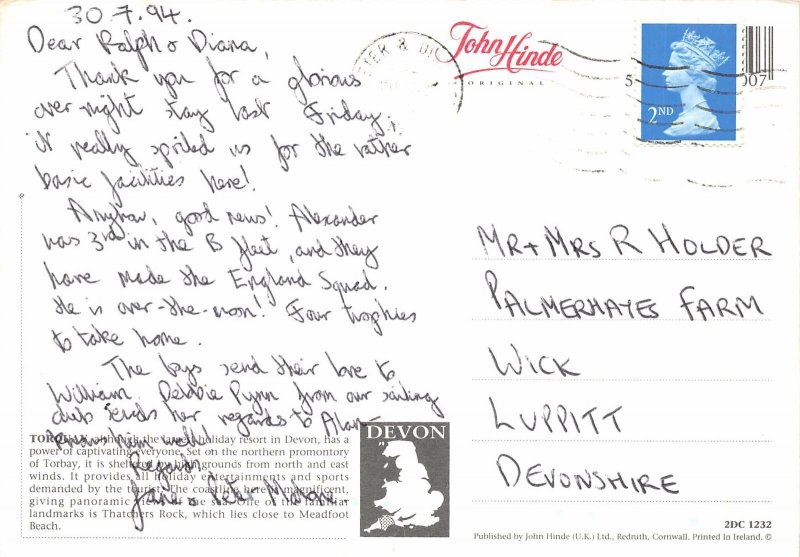 30.7.94.
Dear Ralph & Diana,
Thank you for a glorious
over night stay last Friday,
it really spoiled us for the rather
basic facilities here!
Anyhow, good news! Alexander
was 3rd in the B fleet, and they
have made the England Squad.
He is over-the-moon! Four trophies
to take home.
The boys send their love to
William. Debbie Pynn from our sailing
club sends her regards to Alan -
knows him well!
Regards,
Jane &
John Hinde
ORIGINAL
2ND
5
007
MR + MRS R HOLDER
PALMERHAYES FARM
WICK
LUPPITT
DEVONSHIRE
TORQUAY, although the largest holiday resort in Devon, has a
power of captivating everyone. Set on the northern promontory
of Torbay, it is sheltered by high grounds from north and east
winds. It provides all holiday entertainments and sports
demanded by the tourist. The coastline here is magnificent,
giving panoramic views of the sea. One of the familiar
landmarks is Thatchers Rock, which lies close to Meadfoot
Beach.
DEVON
2DC 1232
Published by John Hinde (U.K.) Ltd., Redruth, Cornwall. Printed In Ireland. ©